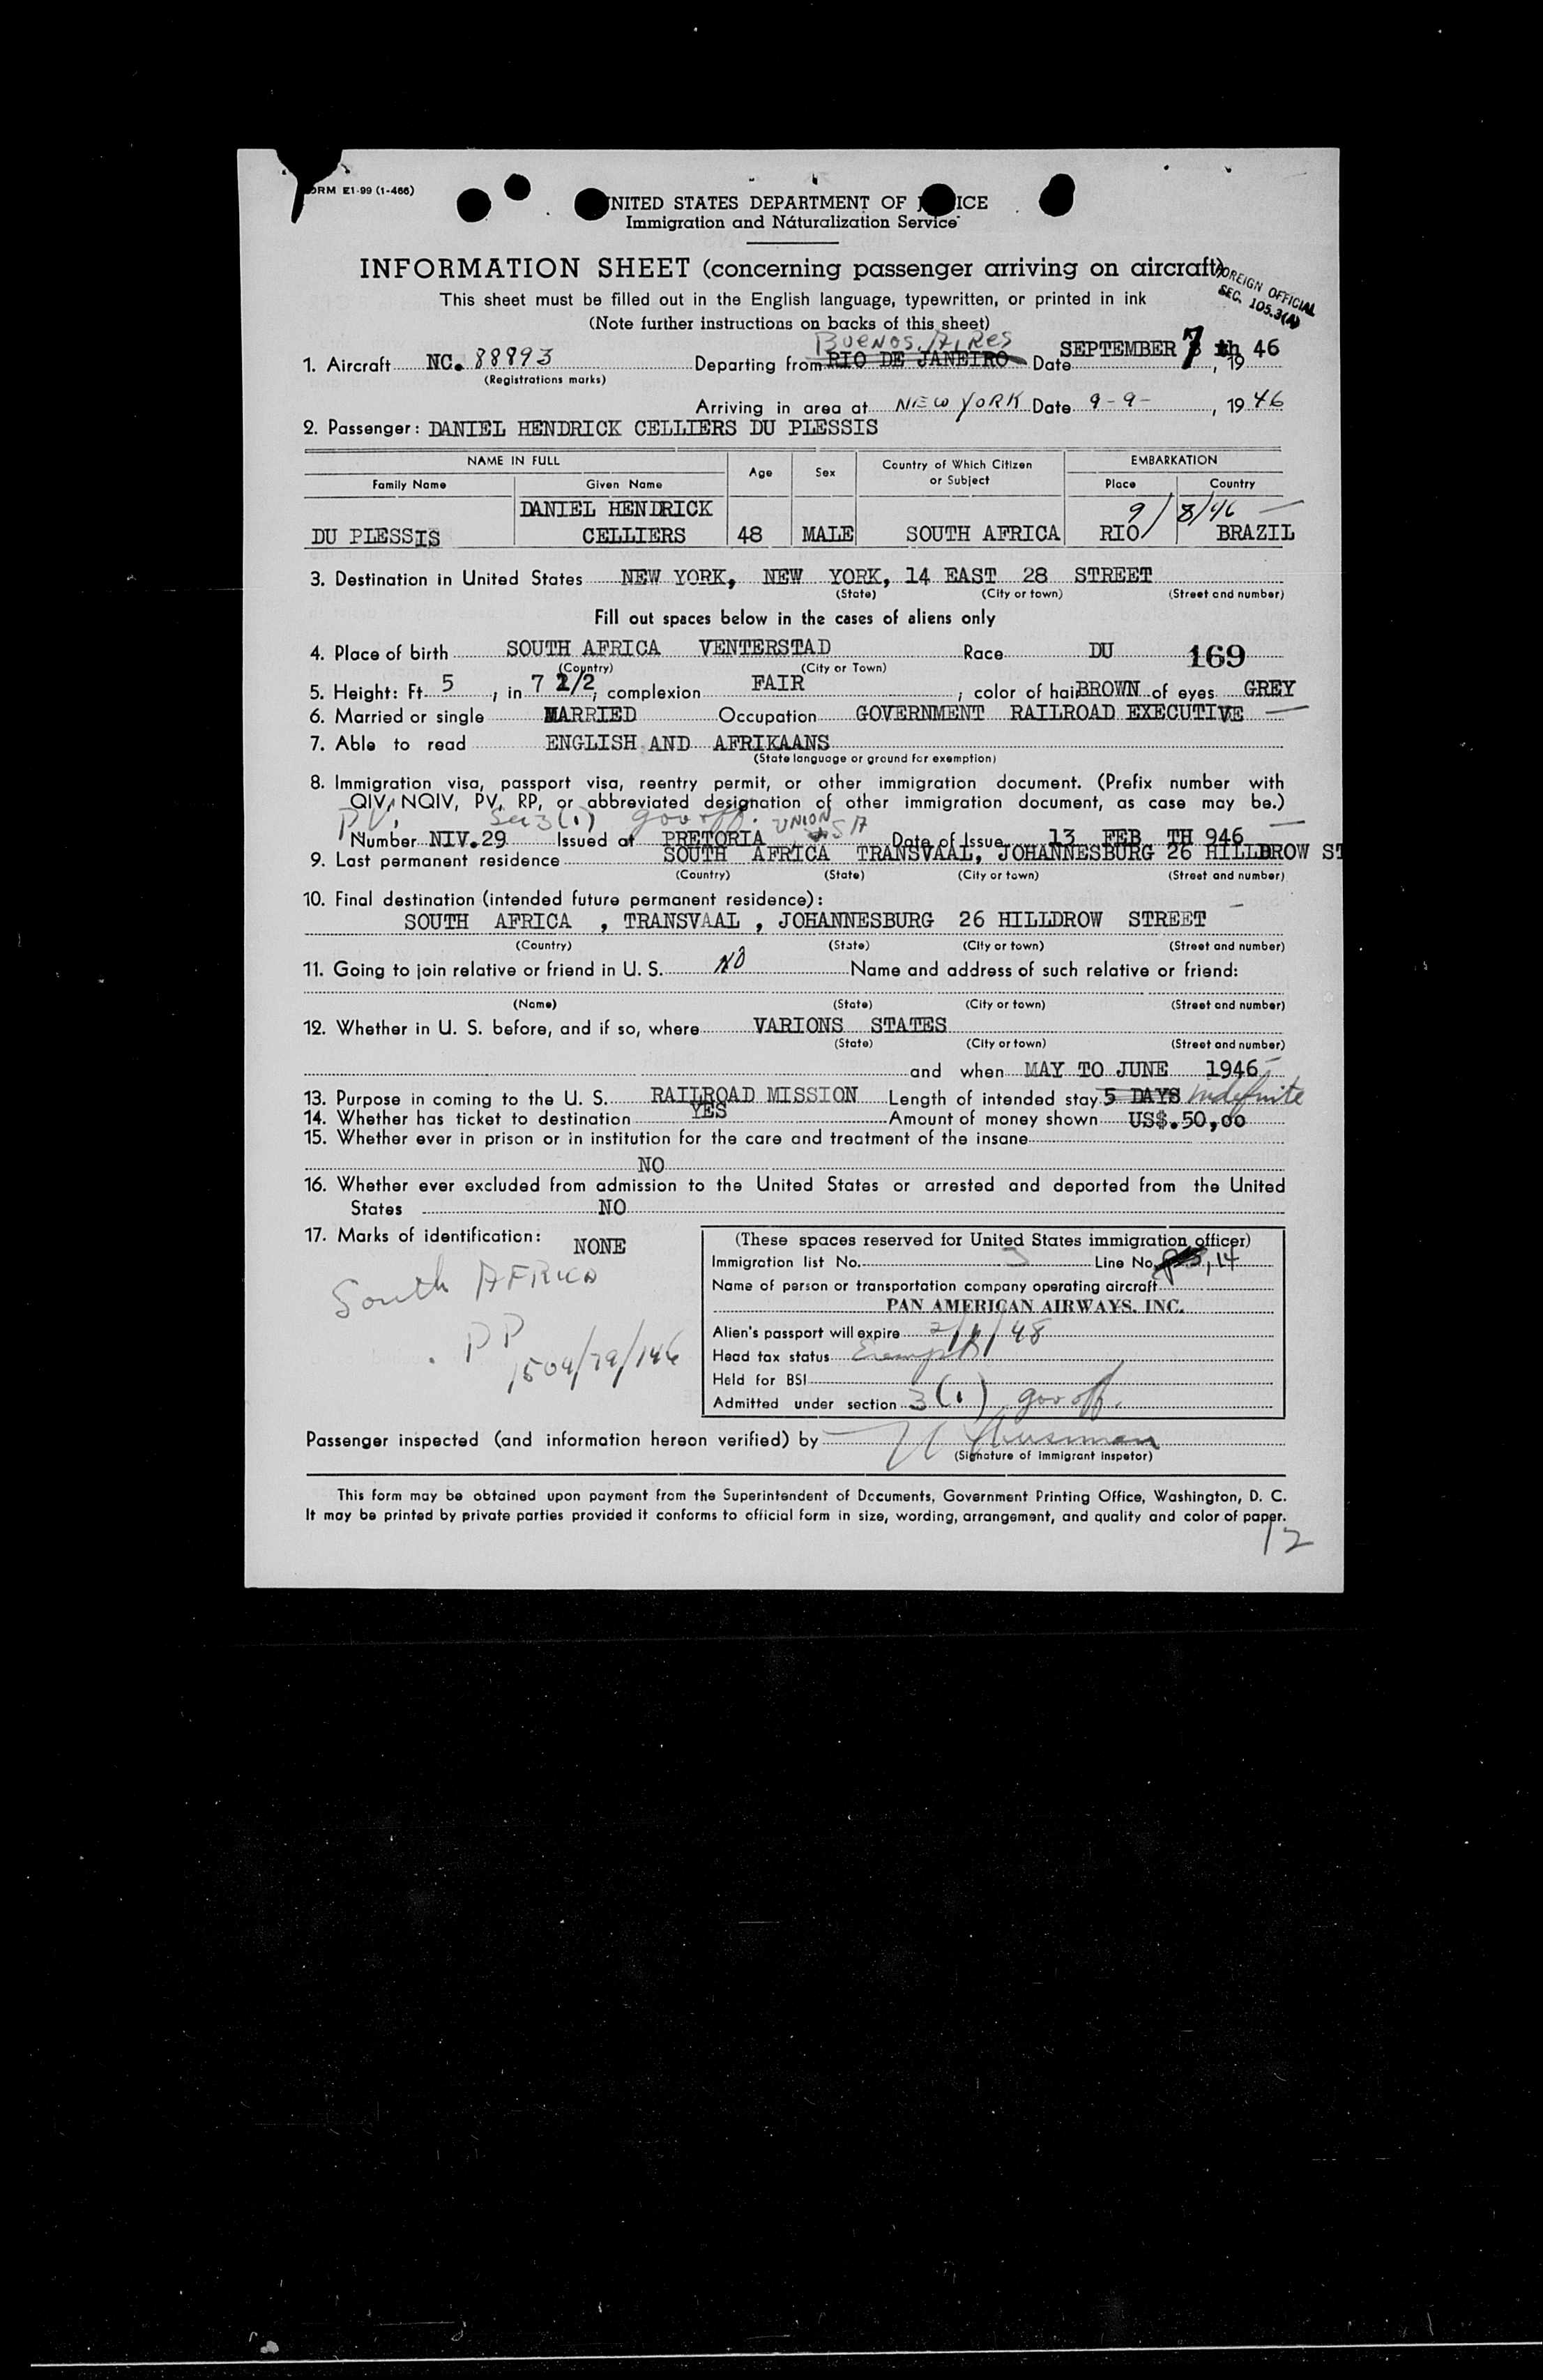 ORM E1-99 (1-466)
NITED STATES DEPARTMENT OF ICE
Immigration and Naturalization Service
INFORMATION SHEET (concerning passenger arriving on aircraft)
FOREIGN OFFICIAL
SEC. 105.3(A)
This sheet must be filled out in the English language, typewritten, or printed in ink
(Note further instructions on backs of this sheet)
BUENOS AIRES
1. Aircraft NC. 88893 Departing from RIO DE JANEIRO Date SEPTEMBER 7 th, 19 46
(Registrations marks)
Arriving in area at NEW YORK Date 9-9-, 19 46
2. Passenger: DANIEL HENDRICK CELLIERS DU PLESSIS
NAME IN FULL Age Sex Country of Which Citizen or Subject EMBARKATION
Family Name Given Name Place Country
DANIEL HENDRICK 9/8/46
DU PLESSIS CELLIERS 48 MALE SOUTH AFRICA RIO BRAZIL
3. Destination in United States NEW YORK, NEW YORK, 14 EAST 28 STREET
(State) (City or town) (Street and number)
Fill out spaces below in the cases of aliens only
4. Place of birth SOUTH AFRICA VENTERSTAD Race DU 169
(Country) (City or Town)
5. Height: Ft. 5, in 7 1/2, complexion FAIR; color of hair BROWN of eyes GREY
6. Married or single MARRIED Occupation GOVERNMENT RAILROAD EXECUTIVE
7. Able to read ENGLISH AND AFRIKAANS
(State language or ground for exemption)
8. Immigration visa, passport visa, reentry permit, or other immigration document. (Prefix number with
QIV, NQIV, PV, RP, or abbreviated designation of other immigration document, as case may be.)
PV, Sec 3(1) gov off. UNION
Number NIV.29 Issued at PRETORIA S A Date of Issue 13 FEB TH 946
9. Last permanent residence SOUTH AFRICA TRANSVAAL, JOHANNESBURG 26 HILLDROW ST
(Country) (State) (City or town) (Street and number)
10. Final destination (intended future permanent residence):
SOUTH AFRICA , TRANSVAAL , JOHANNESBURG 26 HILLDROW STREET
(Country) (State) (City or town) (Street and number)
11. Going to join relative or friend in U. S. NO Name and address of such relative or friend:
(Name) (State) (City or town) (Street and number)
12. Whether in U. S. before, and if so, where VARIONS STATES
(State) (City or town) (Street and number)
and when MAY TO JUNE 1946
13. Purpose in coming to the U. S. RAILROAD MISSION Length of intended stay 5 DAYS Indefinite
14. Whether has ticket to destination YES Amount of money shown US$.50,00
15. Whether ever in prison or in institution for the care and treatment of the insane
NO
16. Whether ever excluded from admission to the United States or arrested and deported from the United
States NO
17. Marks of identification: NONE
South AFRICA
PP
1504/79/146
(These spaces reserved for United States immigration officer)
Immigration list No. 3 Line No. 14
Name of person or transportation company operating aircraft
PAN AMERICAN AIRWAYS, INC.
Alien's passport will expire 2/11/48
Head tax status Exempt
Held for BSI
Admitted under section 3(1) gov off.
Passenger inspected (and information hereon verified) by
(Signature of immigrant inspetor)
This form may be obtained upon payment from the Superintendent of Documents, Government Printing Office, Washington, D. C.
It may be printed by private parties provided it conforms to official form in size, wording, arrangement, and quality and color of paper.
12